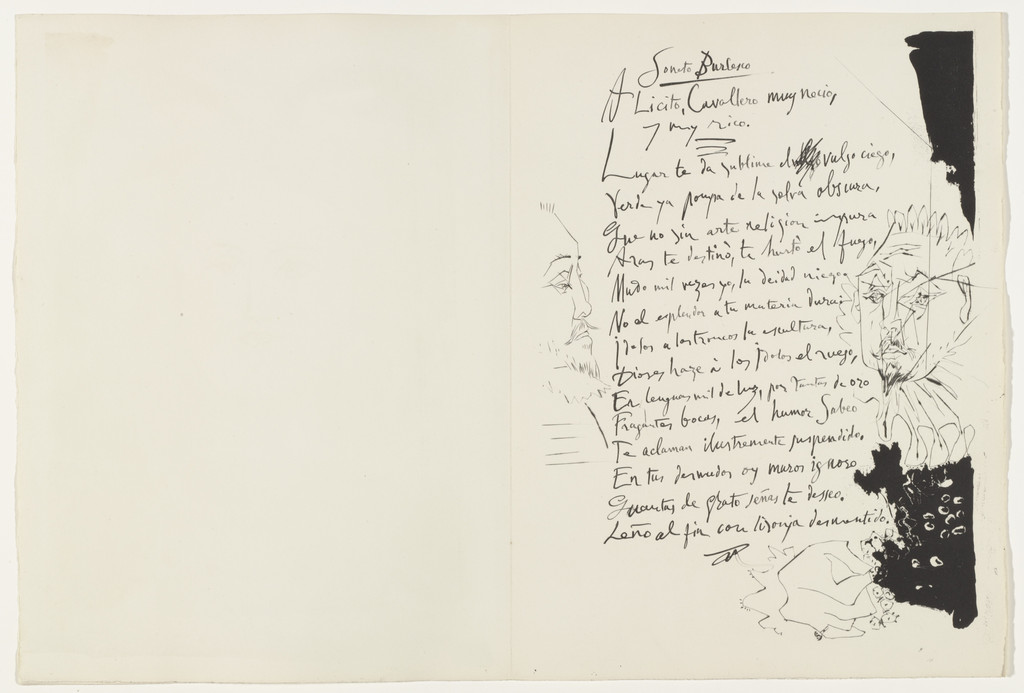 Soneto Burlesco
A Licito, Cavallero muy nocio,
y muy rico.
Lugar te da sublime el vulgo ciego,
Verde ya pompa de la selva obscura,
Que no sin arte religion impura
Aras te destinò, te hurtò el fuego,
Mudo mil vezes yo, la deidad niego.
No el esplendor a tu materia dura;
jdolos a los troncos la escultura,
Dioses haze à los jdolos el ruego,
En lenguas mil de luz, por de oro
Fragantes bocas, el humor Sabeo
Te aclaman ilustremente suspendido.
En tus desnudos oy muros ignoro
Quantas de grato señas te desseo.
Leño al fin con lisonja desmentido.